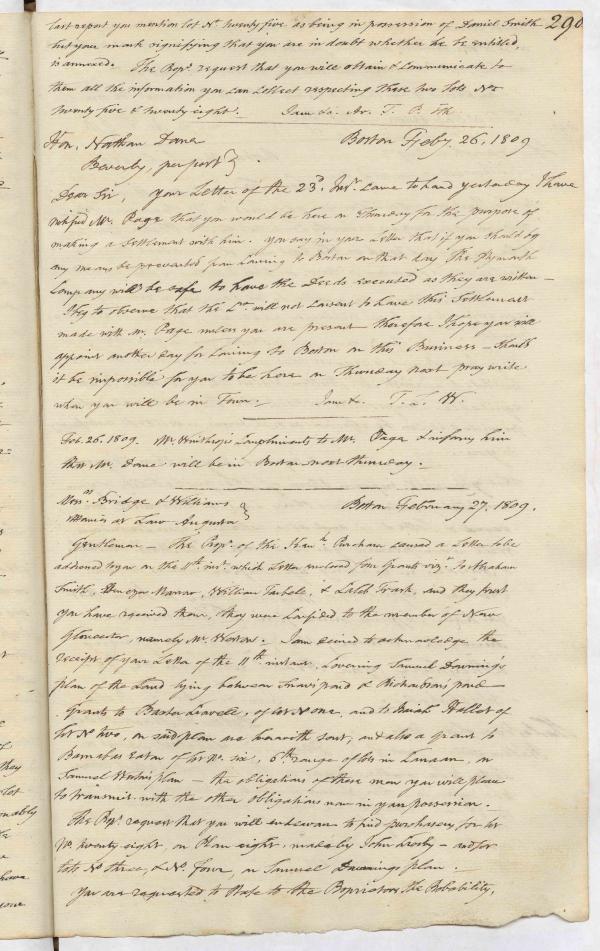 last report you mention lot No. twenty five as being in possession of Daniel Smith 290
but your mark signifying that you are in doubt whether he be entitled,
is annexed. The Propr. request that you will obtain & communicate to
them all the information you can collect respecting these two lots No
twenty five & twenty eight.
Hon. Nathan Dane Boston Feby. 26, 1809
Beverly, per post }
Dear Sir, your Letter of the 23d. Inst. came to hand yesterday I have
notified Mr. Page that you would be here on Thursday for the purpose of
making a Settlement with him. you say in your Letter that if you should by
any means be prevented from coming to Boston on that day the Plymouth
Company will be safe to have the Deeds executed as they are written —
I beg to observe that the Co. will not consent to have this Settlement
made with Mr. Page unless you are present therefore I hope you will
appoint another day for coming to Boston on this Business — Should
it be impossible for you to be here on Thursday next pray write
when you will be in Town. — I am &c. T. L. W.
Feb. 26. 1809. Mr. Winthrop's Compliments to Mr. Page & informs him
that Mr. Dane will be in Boston next thursday.
Messrs. Bridge & Williams } Boston February 27. 1809.
at Law Augusta
Gentlemen — The Propr. of the Kenk. Purchase caused a Letter to be
addressed to you on the 11th inst. which Letter enclosed four Grants viz. to Abraham
Smith, Ebenezer Marrow, William Tarbele, & Caleb Trask, and they trust
you have received them, they were confided to the member of New
Gloucester, namely Mr. I am desired to acknowledge the
receipt of your Letter of the 11th instant, covering Samuel Downing's
plan of the Land lying between Travis pond & Richardson's pond
Grants to Baxter Crowele, of lot No one, and to Isaiah Hallet of
lot No two, on said plan are herewith sent, and also a grant to
Barnabas Eaton of lot No. six, 6th range of lots in Canaan, on
Samuel Weston's plan — the obligations of these men you will please
to transmit with the other obligations now in your possession.
The Propr. request that you will endeavour to find purchasers for lot
No. twenty eight, on Plan eight, made by John Crosby — and for
lots No three, & No. four, on Samuel Downings plan.
You are requested to State to the Proprietors the Probability,